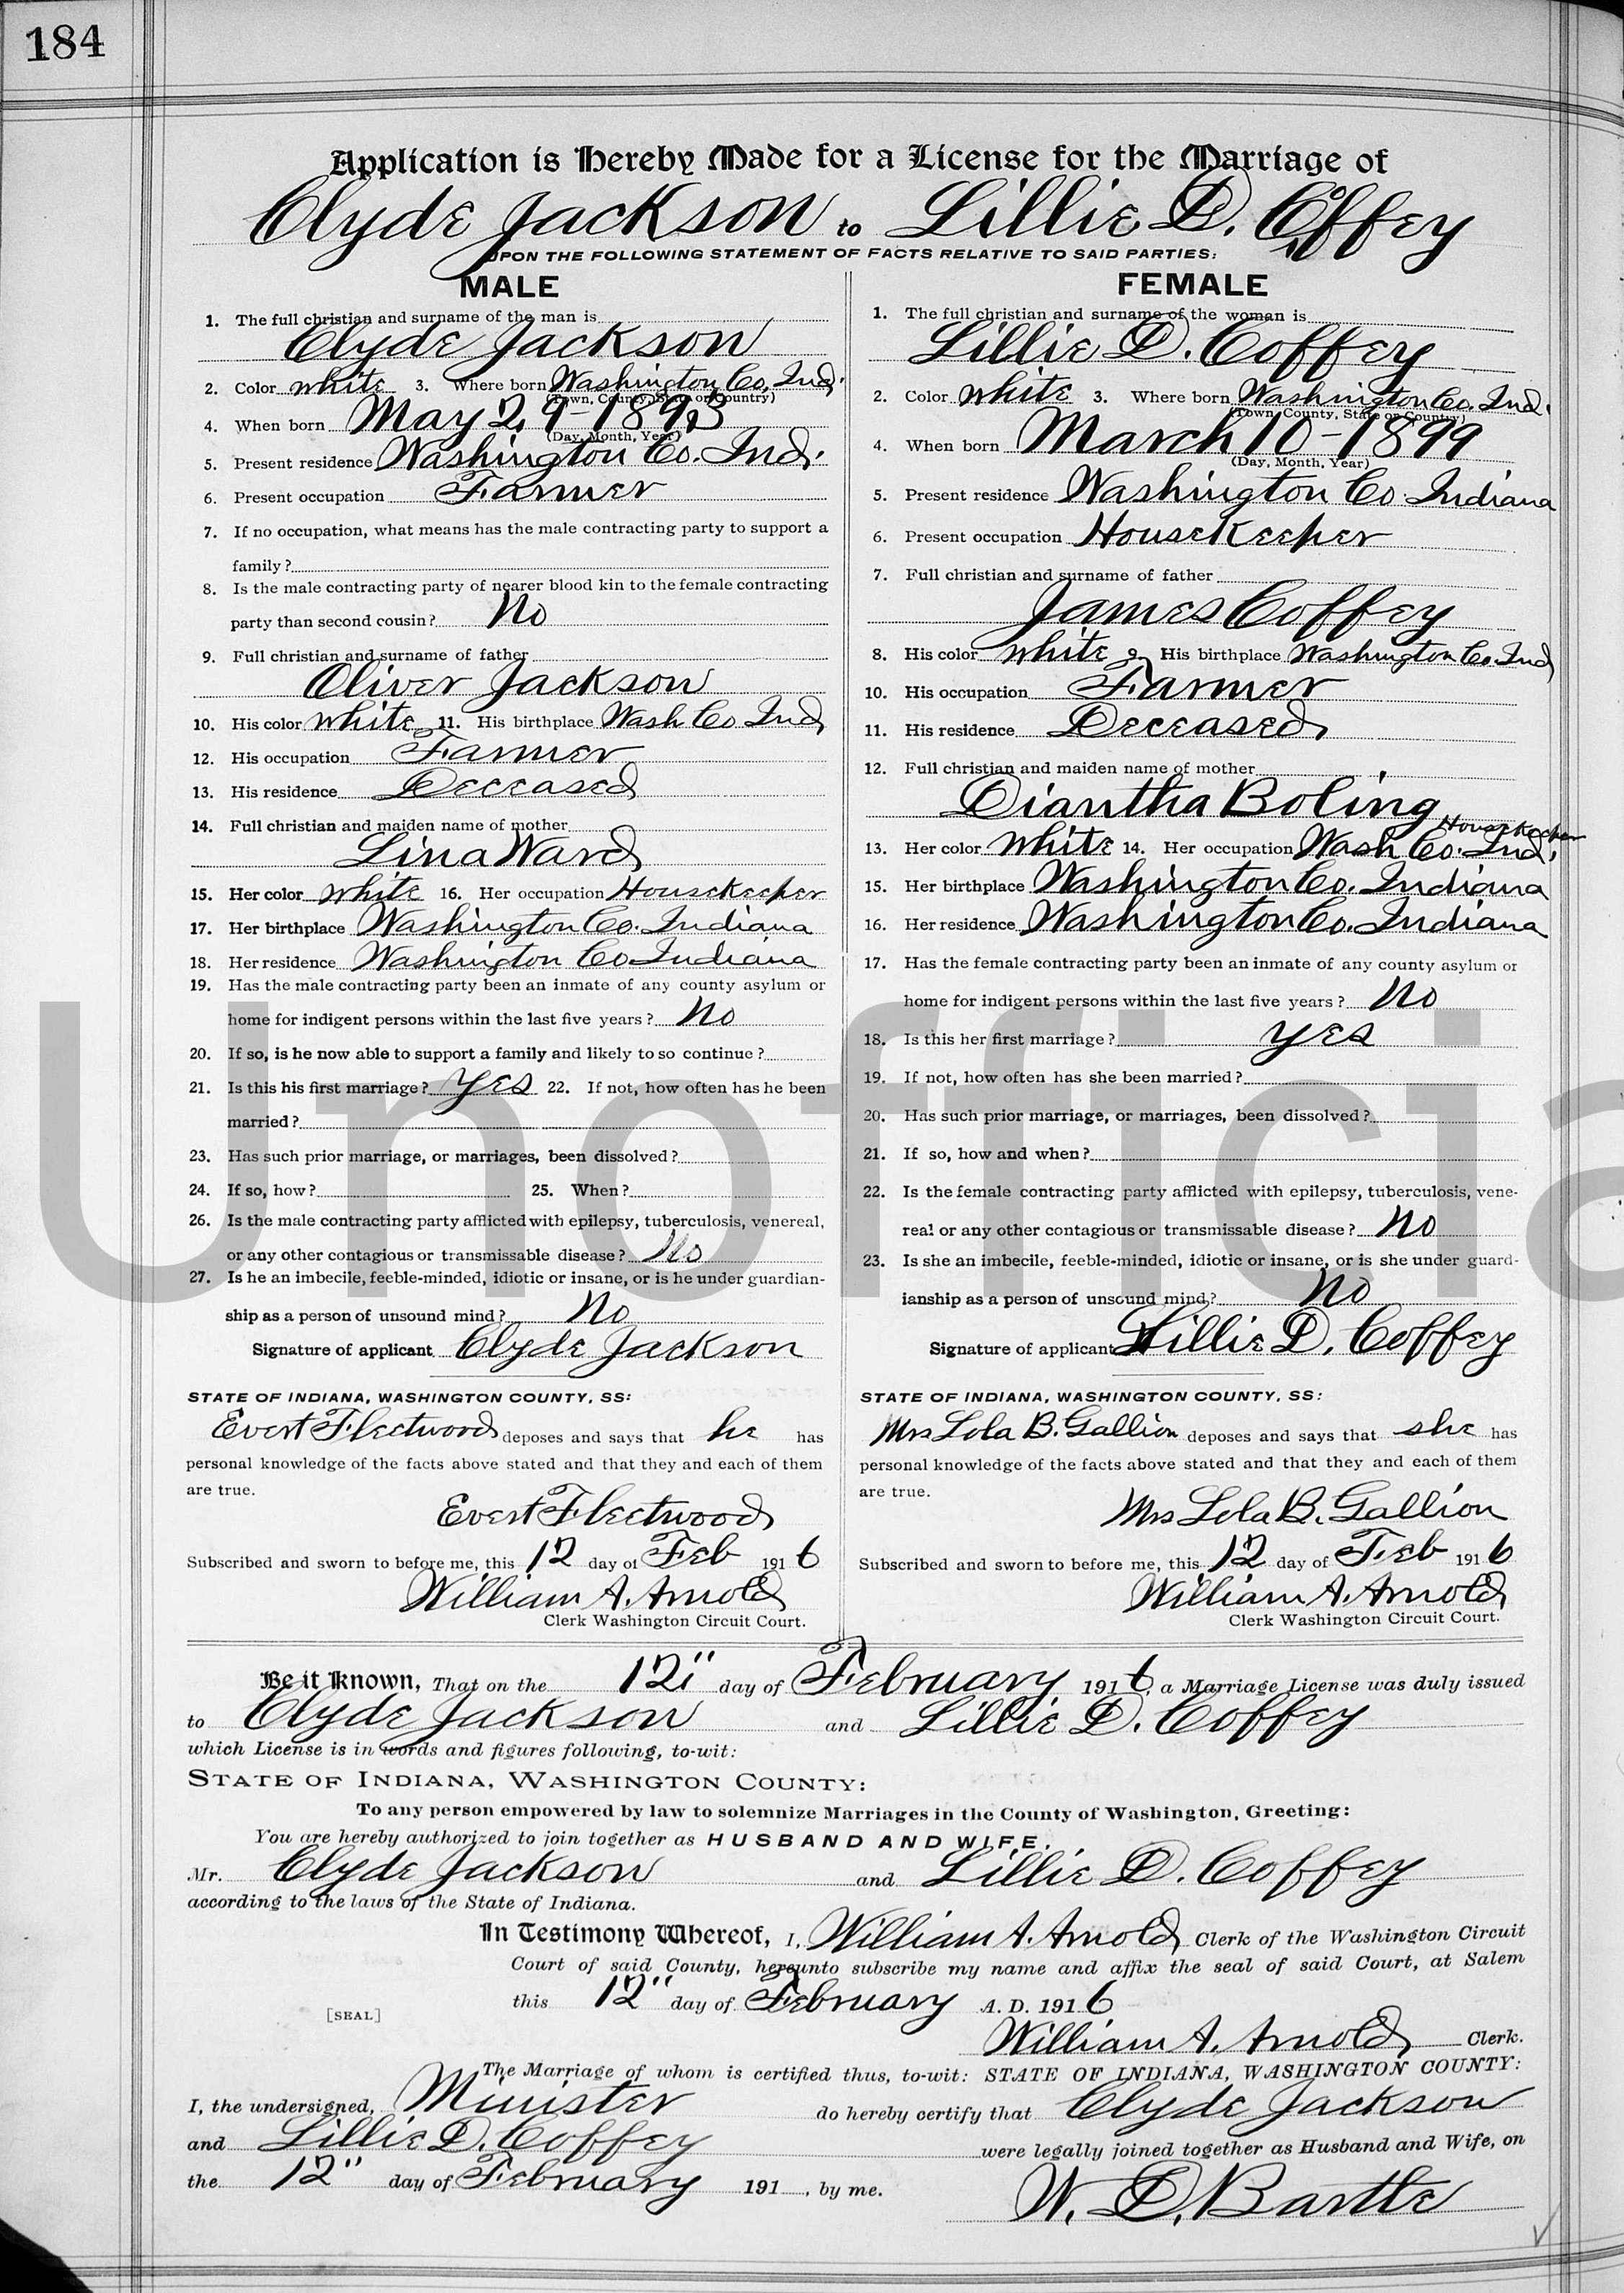 184
Application is Hereby Made for a License for the Marriage of
Clyde Jackson to Lillie D. Coffey
UPON THE FOLLOWING STATEMENT OF FACTS RELATIVE TO SAID PARTIES:
MALE
1. The full christian and surname of the man is
Clyde Jackson
2. Color white 3. Where born Washington Co. Ind.
(Town, County, State or Country)
4. When born May 29-1893
(Day, Month, Year)
5. Present residence Washington Co. Ind.
6. Present occupation Farmer
7. If no occupation, what means has the male contracting party to support a
family?
8. Is the male contracting party of nearer blood kin to the female contracting
party than second cousin? No
9. Full christian and surname of father
Oliver Jackson
10. His color white 11. His birthplace Wash Co Ind
12. His occupation Farmer
13. His residence Deceased
14. Full christian and maiden name of mother
Lina Ward
15. Her color white 16. Her occupation Housekeeper
17. Her birthplace Washington Co. Indiana
18. Her residence Washington Co Indiana
19. Has the male contracting party been an inmate of any county asylum or
home for indigent persons within the last five years? No
20. If so, is he now able to support a family and likely to so continue?
21. Is this his first marriage? yes 22. If not, how often has he been
married?
23. Has such prior marriage, or marriages, been dissolved?
24. If so, how? 25. When?
26. Is the male contracting party afflicted with epilepsy, tuberculosis, venereal,
or any other contagious or transmissable disease? No
27. Is he an imbecile, feeble-minded, idiotic or insane, or is he under guardian-
ship as a person of unsound mind? No
Signature of applicant Clyde Jackson
STATE OF INDIANA, WASHINGTON COUNTY, SS:
Evert Fleetwood deposes and says that he has
personal knowledge of the facts above stated and that they and each of them
are true.
Evert Fleetwood
Subscribed and sworn to before me, this 12 day of Feb 1916
William A. Arnold
Clerk Washington Circuit Court.
FEMALE
1. The full christian and surname of the woman is
Lillie D. Coffey
2. Color white 3. Where born Washington Co. Ind.
(Town, County, State or Country)
4. When born March 10-1899
(Day, Month, Year)
5. Present residence Washington Co. Indiana
6. Present occupation Housekeeper
7. Full christian and surname of father
James Coffey
8. His color white 9. His birthplace Washington Co. Ind
10. His occupation Farmer
11. His residence Deceased
12. Full christian and maiden name of mother
Diantha Boling
Housekeeper
13. Her color white 14. Her occupation Wash Co. Ind.
15. Her birthplace Washington Co. Indiana
16. Her residence Washington Co. Indiana
17. Has the female contracting party been an inmate of any county asylum or
home for indigent persons within the last five years? No
18. Is this her first marriage? yes
19. If not, how often has she been married?
20. Has such prior marriage, or marriages, been dissolved?
21. If so, how and when?
22. Is the female contracting party afflicted with epilepsy, tuberculosis, vene-
real or any other contagious or transmissable disease? No
23. Is she an imbecile, feeble-minded, idiotic or insane, or is she under guard-
ianship as a person of unsound mind? No
Signature of applicant Lillie D. Coffey
STATE OF INDIANA, WASHINGTON COUNTY, SS:
Mrs Lola B. Gallion deposes and says that she has
personal knowledge of the facts above stated and that they and each of them
are true.
Mrs Lola B. Gallion
Subscribed and sworn to before me, this 12 day of Feb 1916
William A. Arnold
Clerk Washington Circuit Court.
Be it Known, That on the 12" day of February 1916, a Marriage License was duly issued
to Clyde Jackson and Lillie D. Coffey
which License is in words and figures following, to-wit:
STATE OF INDIANA, WASHINGTON COUNTY:
To any person empowered by law to solemnize Marriages in the County of Washington, Greeting:
You are hereby authorized to join together as HUSBAND AND WIFE,
Mr. Clyde Jackson and Lillie D. Coffey
according to the laws of the State of Indiana.
In Testimony Whereof, I, William A. Arnold Clerk of the Washington Circuit
Court of said County, hereunto subscribe my name and affix the seal of said Court, at Salem
this 12" day of February A. D. 1916
[SEAL]
William A. Arnold Clerk.
The Marriage of whom is certified thus, to-wit: STATE OF INDIANA, WASHINGTON COUNTY:
I, the undersigned, Minister do hereby certify that Clyde Jackson
and Lillie D. Coffey were legally joined together as Husband and Wife, on
the 12" day of February 191 , by me.
W. D. Bartle
Unofficia